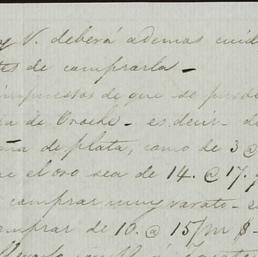 y V. deberá ademas cuid
es de comprarla –
impuestos de que se pued
de Oroche – es decir – de
na de plata, como de 3 @
e el oro sea de 14. @ 17. p
comprar muy varato – e
mprar de 10. @ 15/m $ –